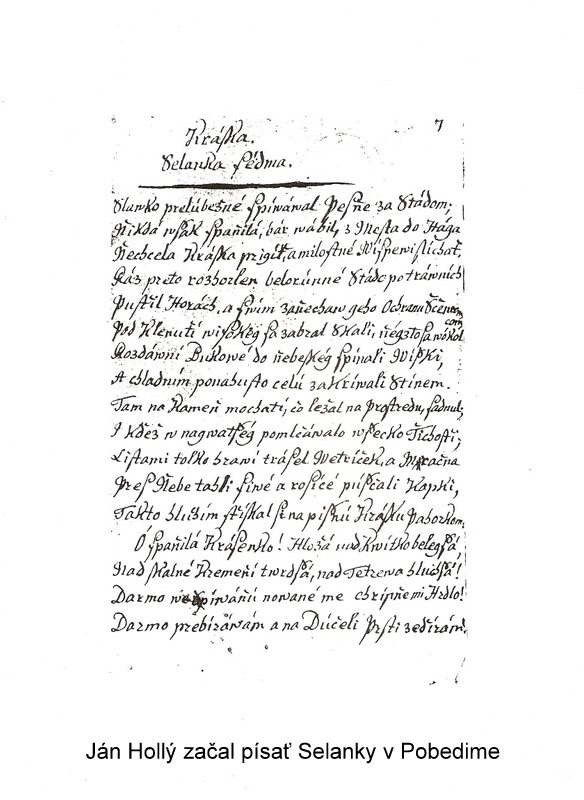 7
Kráska.
Selanka sédma.
Slawko prelúbezné spíwáwal Pesňe za Stádom;
Ňikdá wšak spaňilá, bár wábil, z Mesta do Hága
Ňechcela Kráska prigíť, a milostné Wíspewi slichať,
Ráz preto rozhorlen belorúnné Stádo po tráwních
Pustil Horách, a swím zaňechaw geho Ochranu Ščencom
Pod Klenutí wisokég sa zabral Skali, ňégž to sa wókol
Rozdáwni Bukowé do nebeskég spínali Wíski,
A chladním ponahusto celú zakríwali Stínem.
Tam na Kameň mochatí, čo ležal na prostredu, sadnul;
I kďež w nagwatšég pomlčáwalo wšecko Ťichosťi;
Listami tolko hrawí trásel Wetríček, a Mračna
Pres Ňebe tahli siwé a rosicé púščali Kapki,
Takto hluším stískal si na pišnú Krásku Pahorkom.
Ó spaňilá Krásenko! Hložá nad Kwítko belegšá,
Nad skalné Kremeňí twrdšá, nad Tetrewa hluchšá!
Darmo spíwáňú nowané me chripňe mi Hrdlo!
Darmo prebíráwám a na Dúčeli Prsti zedírám.
Ján Hollý začal písať Selanky v Pobedime